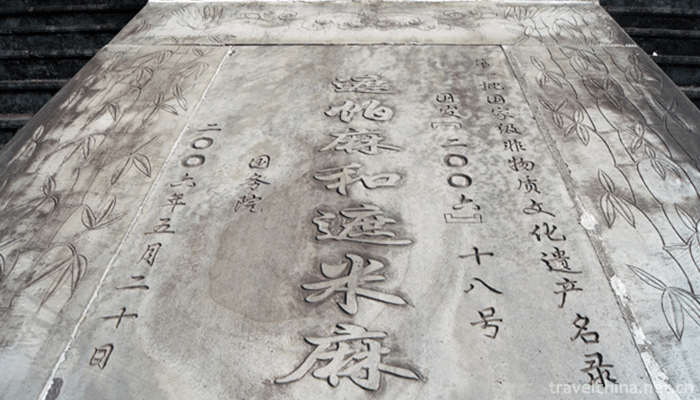 第一批国家级非物质文化遗产名录
国发【二〇〇六】十八号
遮帕麻和遮米麻
国务院
二〇〇六年五月二十日
travelchina.net.cn